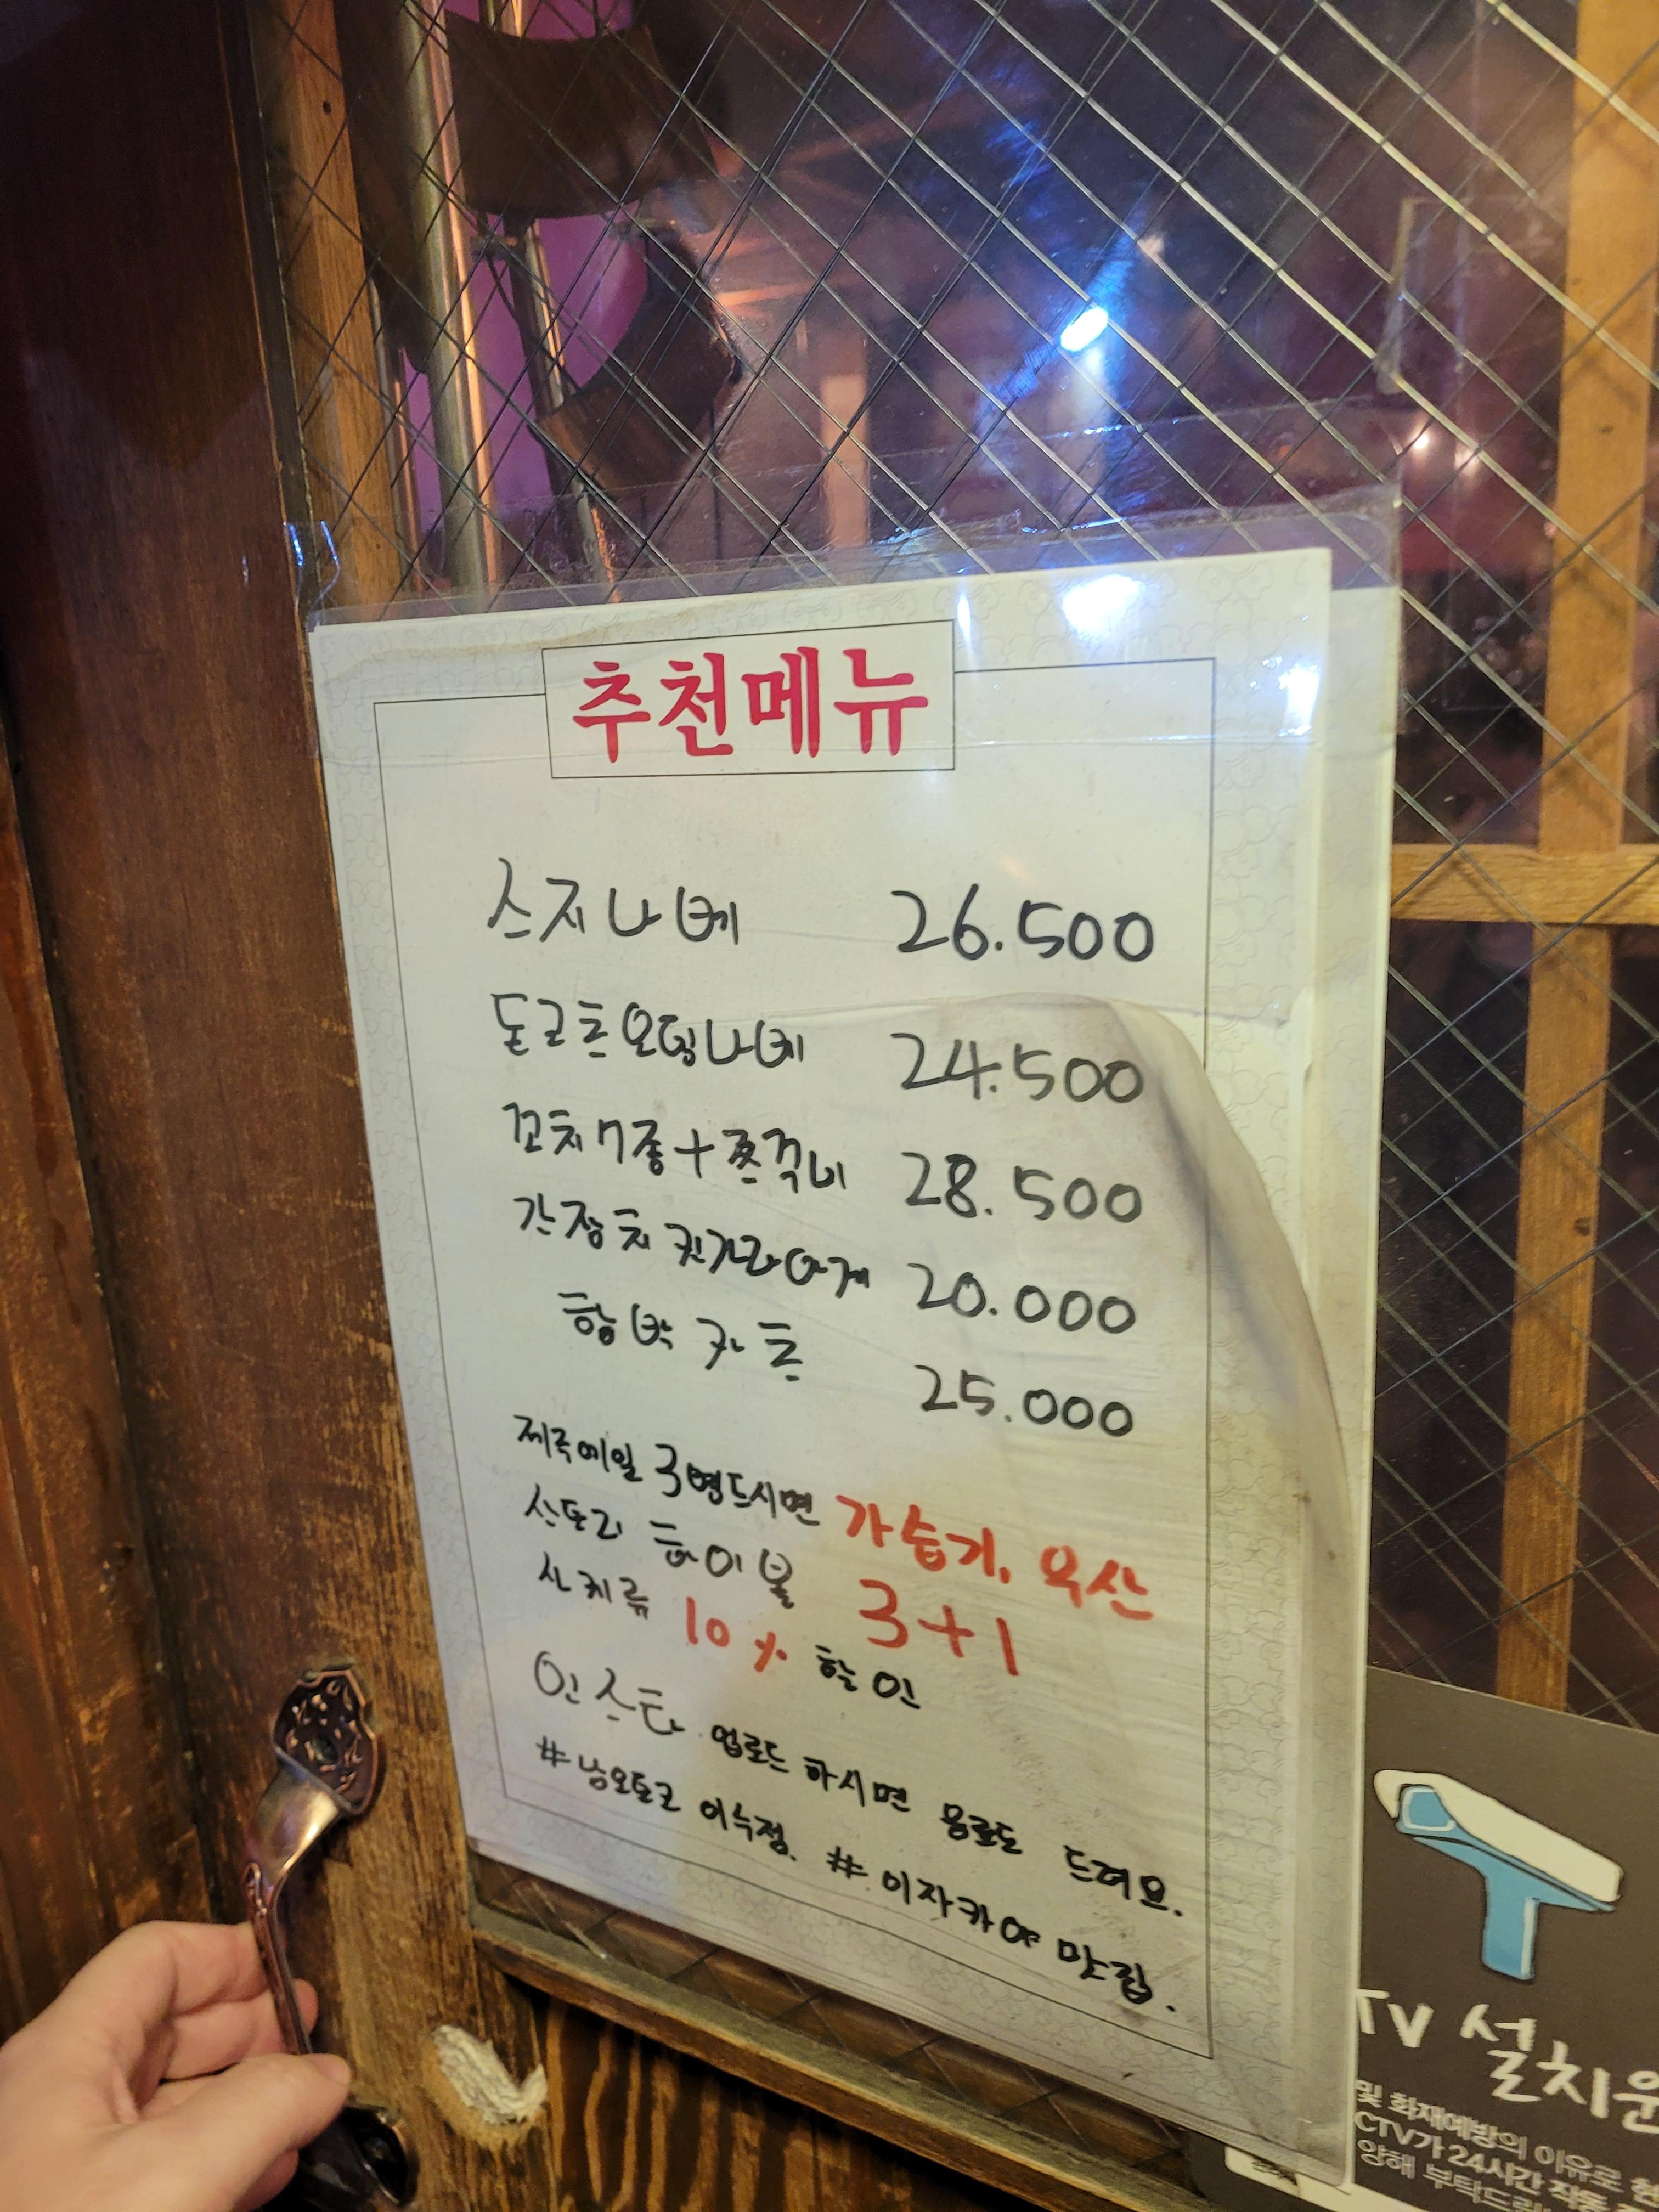 추천메뉴
스지나베 26.500
돈코츠오뎅나베 24.500
꼬치7종+쯔꾸네 28.500
간장치킨가라아게 20.000
함박카츠 25.000
제주에일 3병드시면 가습기, 우산
산토리 하이볼 3+1
사케류 10% 할인
인스타 업로드 하시면 음료도 드려요.
#낭오토코 이수점. # 이자카야 맛집.
TV 설치운
및 화재예방의 이유로
CTV가 24시간 작동
양해 부탁드리